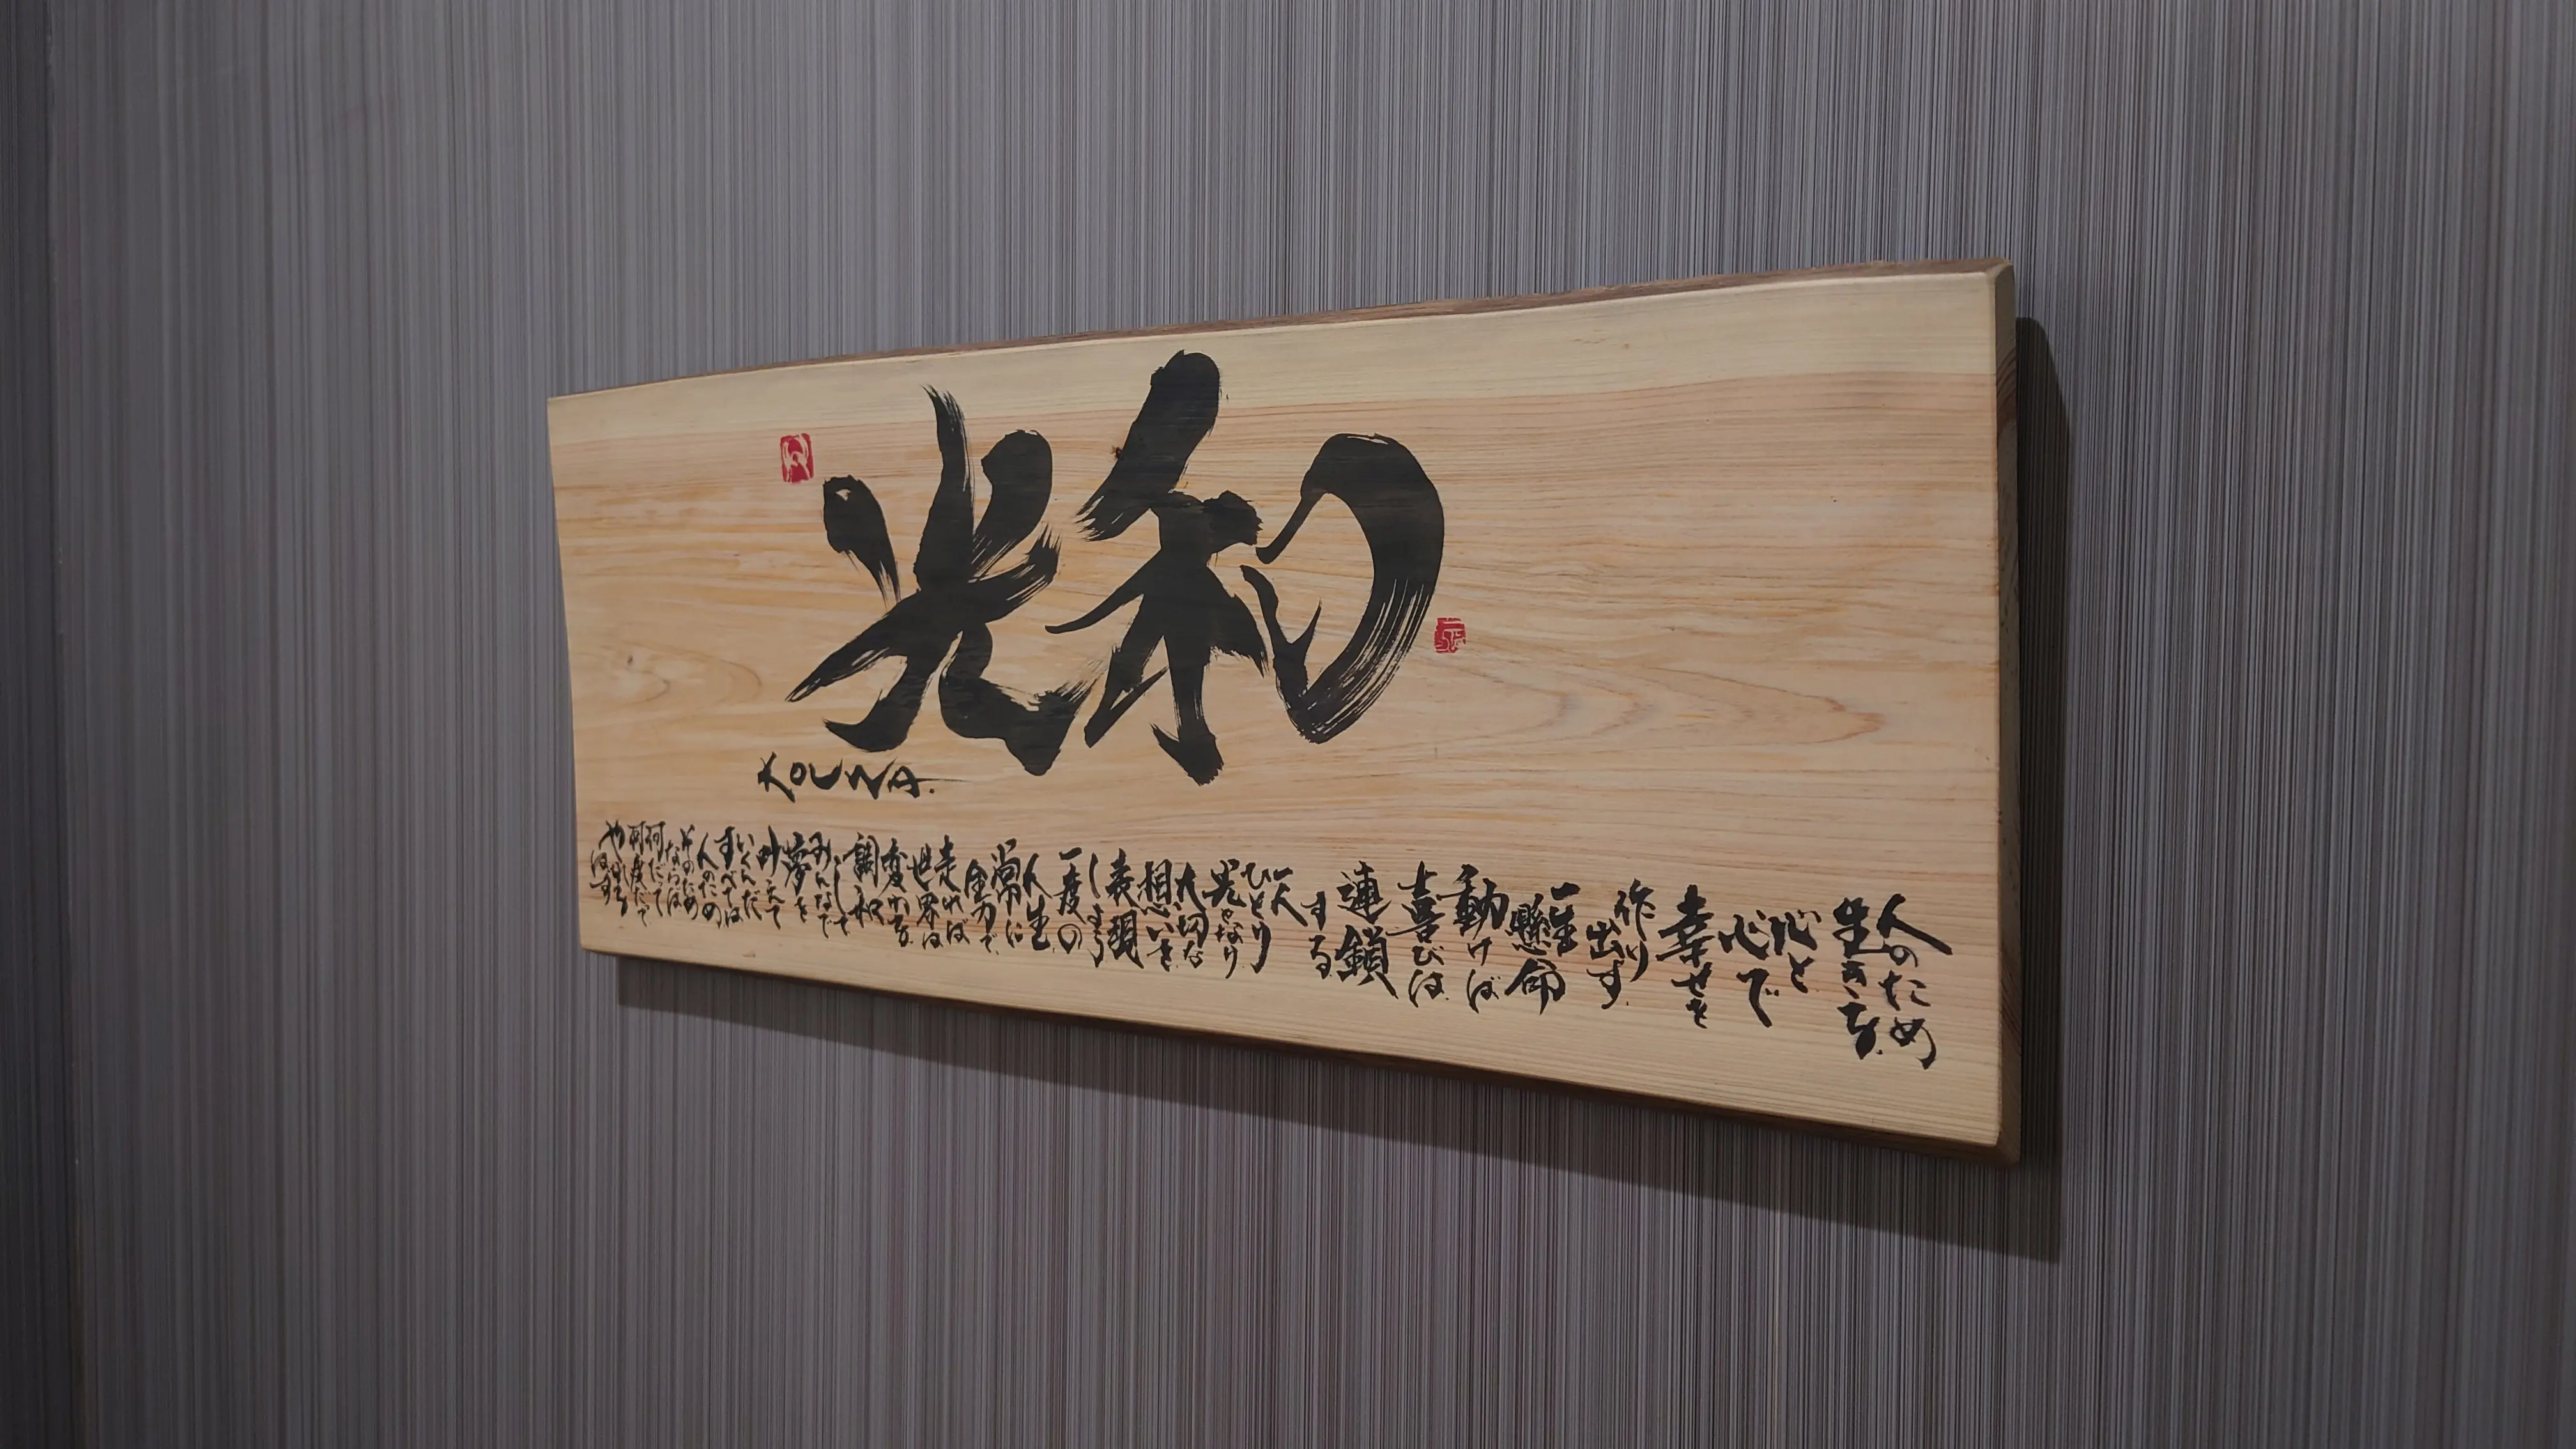 光和
KOUWA.
人のため
生きる
心と
心で
幸せを
作り
出す
一生
懸命
動けば
喜びは
連鎖
する
一人
ひとり
大切な
想いを
表現
しよう
一度の
人生
常に
全力で
走れば
世界は
変わる
調和
して
みんなで
夢を
叶えて
いくんだ
すべては
人のため
そのため
ならば
何だって